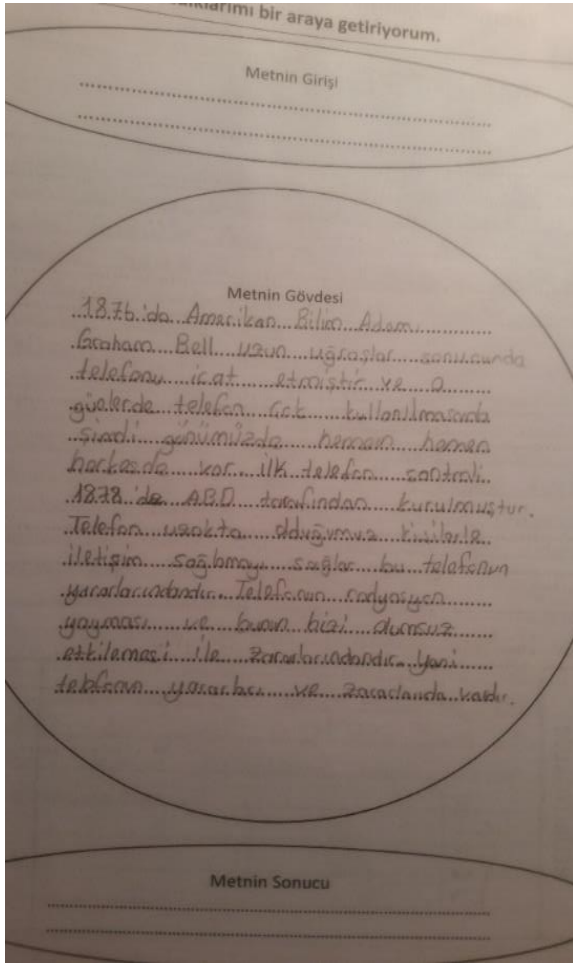 bir araya getiriyorum.
Metnin Girişi
Metnin Gövdesi
1876'da Amerikan Bilim Adamı
Graham Bell uzun uğraşlar sonucunda
telefonu icat etmiştir ve o
günlerde telefon çok kullanılmasada
şimdi günümüzde hemen hemen
herkesde var. İlk telefon santrali
1878'de ABD tarafından kurulmuştur.
Telefon uzakta olduğumuz kişilerle
iletişim sağlamayı sağlar bu telefonun
yararlarındandır. Telefonun radyasyon
yayması ve bunun bizi olumsuz
etkilemesi ile zararlarındandır. Yani
telefonun yararları ve zararlarıda vardır.
Metnin Sonucu